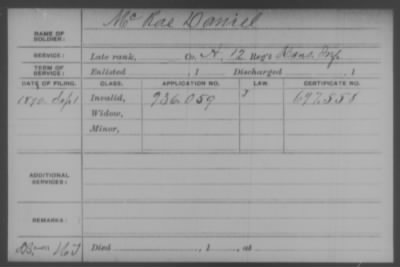 NAME OF SOLDIER: McRae Daniel
SERVICE: Late rank, Co. H, 12 Reg't Kans. Inf.
TERM OF SERVICE: Enlisted , 1 Discharged , 1
DATE OF FILING. CLASS. APPLICATION NO. LAW. CERTIFICATE NO.
1890 Sept Invalid, 936.059 J 697.558
Widow,
Minor,
ADDITIONAL SERVICES:
REMARKS:
Died , 1 , at